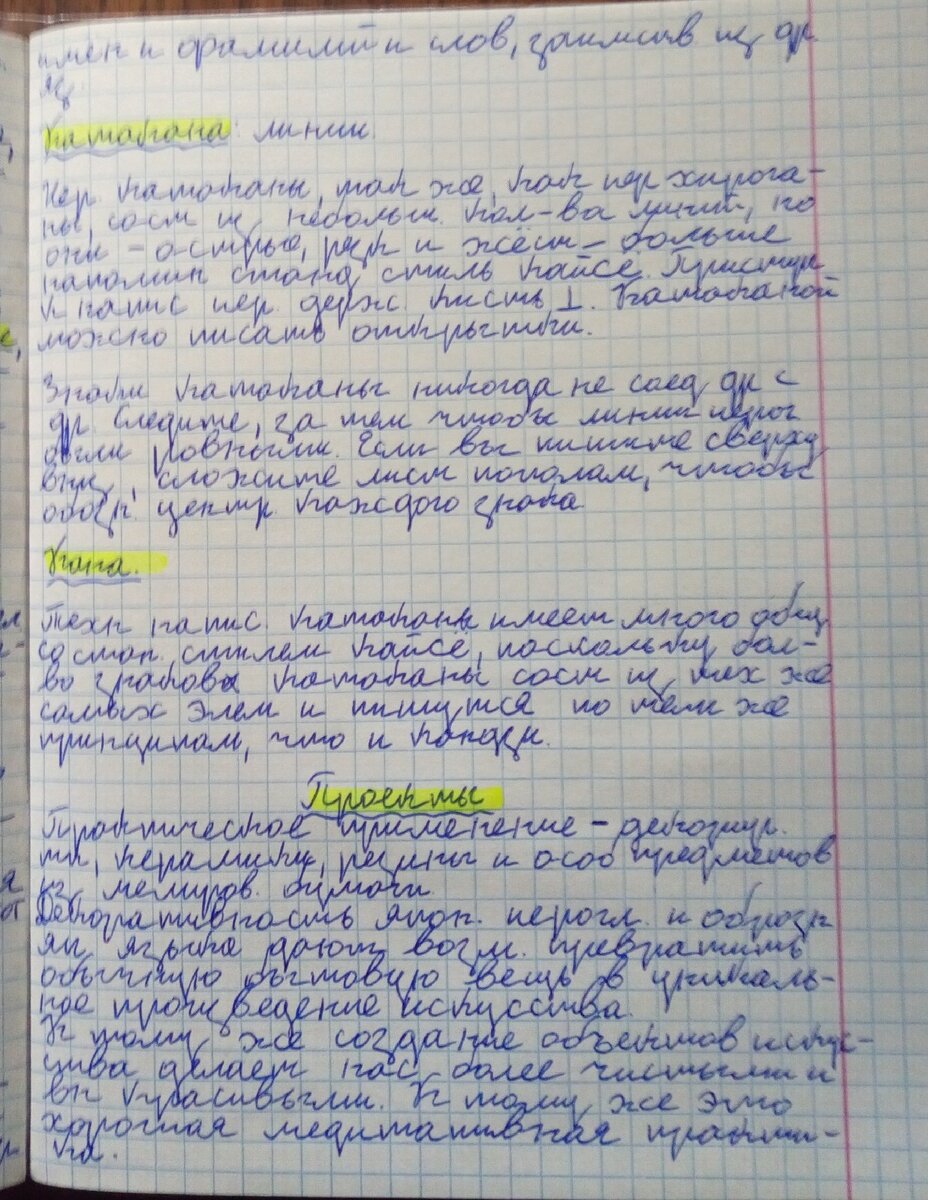 имен и фамилий и слов, заимств из др
яз
Катакана: линии.
Иер. катаканы, так же, как иер хирага-
ны, сост из небольш. кол-ва линий, но
они - острые, резк и жёст - больше
напомин станд стиль кайсё. Приступ
к напис иер. держ кисть ⊥. Катаканой
можно писать открытки.
Знаки катаканы никогда не соед др с
др. Следите, за тем чтобы линии иерог
были ровными. Если вы пишите сверху
вниз, сложите лист пополам, чтобы
обозн. центр каждого знака
Кана.
Техн напис. катаканы имеет много общ
со стан. стилем кайсё, поскольку бол-
во знаков катаканы сост из тех же
самых элем и пишутся по тем же
принципам, что и кандзи.
Проекты
Практическое применение - декорир.
тк, керамики, резины и особ предметов
из мемуров. бумаги
Декоративность япон. иерогл. и образн
яп языка дают возм. превратить
обычную бытовую вещь в уникаль-
ное произведение искусства.
К тому же создание объектов искус-
ства делает нас более чистыми и
вн красивыми. К тому же это
хорошая медитативная практи-
ка.